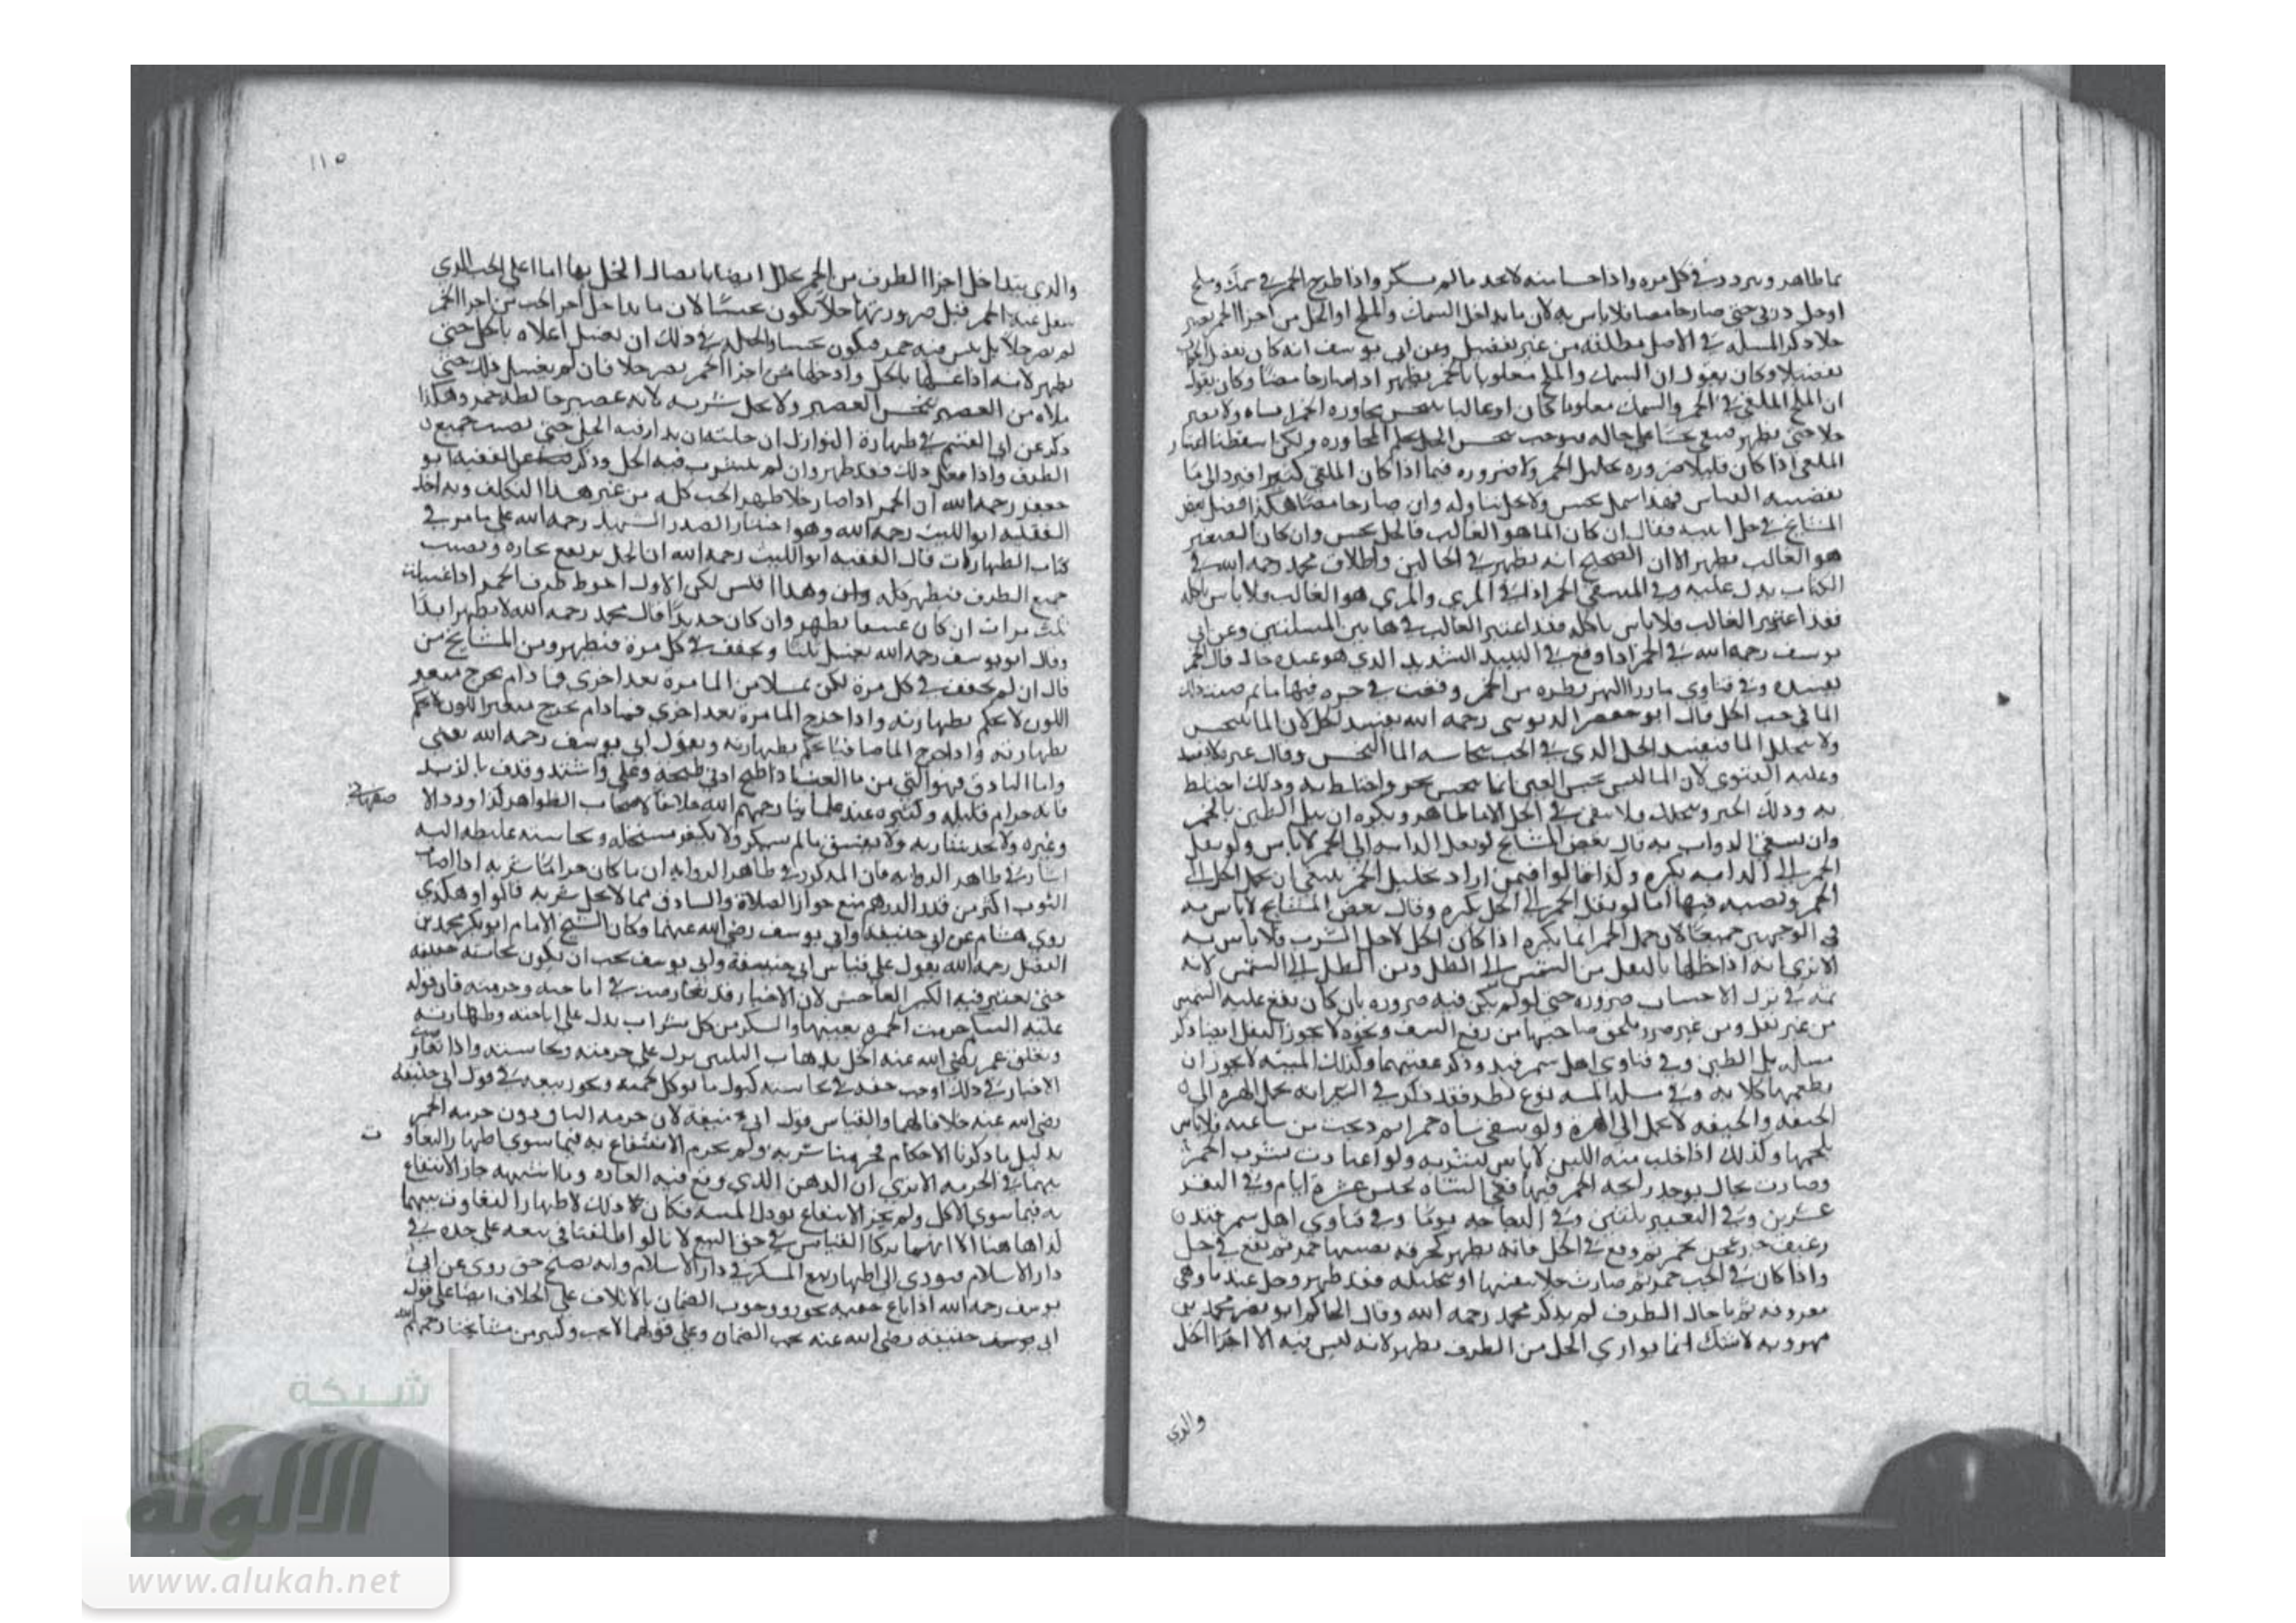 بماطاهر ويبرد في كل مره واذا حسا منه لا يحد مالم يسكر واذا طرح الخمر في سمك وملح
او خل دربى حتى صار حامضا فلا باس به لان ما يداخل السمك والملح او الخل من اجزا الخمر يصير
خلا ذكر المسله في الاصل مطلقه من غير تفصيل وعن ابي يوسف انه كان يفصل الجواب
تفصيلا وكان يقول ان السمك والملح مغلوبا بالخمر يطهر اذا صار حامضا وكان يقول
ان الملح الملقى في الخمر والسمك مغلوبا كان او غالبا يتنجس بمجاوره الخمر اياه ولا يصير
خلا حتى يطهر فيبقى نجسا على حاله فيوجب تنجس الخل بحكم المجاوره ولكن اسقطنا اعتبار
الملقى اذا كان قليلا ضروره تخليل الخمر ولا ضروره فيما اذا كان الملقى كثيرا فيرد الى ما
يقتضيه القياس فهذا سمك نجس ولا يحل تناوله وان صار حامضا هكذا فصل بعض
المشايخ في خل فقال ان كان الما هو الغالب فالخل نجس وان كان العصير
هو الغالب يطهر الا ان الصحيح انه يطهر في الحالين واطلاق محمد رحمه الله في
الكتاب يدل عليه وفي المنتقى الخمر اذا في المري والمري هو الغالب فلا باس باكله
فقد اعتبر الغالب فلا باس باكله فقد اعتبر الغالب في هاتين المسلتين وعن ابي
يوسف رحمه الله في الخمر اذا وقع في النبيذ الشديد الذي هو عنده حلال قال الخمر
يفسده وفي فتاوي ماورا النهر قطره من الخمر وقعت في جره فيها ما ثم صب ذلك
الما في حب الخل قال ابو جعفر الدبوسي رحمه الله يفسد الخل لان الما يتنجس
ولا يتخلل الما فيفسد الخل الذي في الحب بنجاسه الما النجس وقال غيره لا يفسد
وعليه الفتوى لان الما ليس نجس العين انما تنجس بخمر واختلط به وذلك اختلط
به وذلك الخمر وتخلل فلا يبقى في الخل الا ما طاهر ويكره ان يبل الطين بالخمر
وان يسقى الدواب به قال بعض المشايخ لو نقل الدابه الى الخمر لا باس ولو نقل
الخمر الى الدابه يكره وكذا قالوا فيمن اراد تخليل الخمر ينبغي ان يحمل الخل الى
الخمر ويصبه فيها اما لو نقل الخمر الى الخل يكره وقال بعض المشايخ لا باس به
في الوجهين جميعا لان حمل الخمر انما يكره اذا كان الحمل لاجل الشرب فلا باس به
الا ترى انه اذا خللها بالنقل من الشمس الى الظل ومن الظل الى الشمس لانه
ثمه في ترك الاحتساب ضروره حتى لو لم يكن فيه ضروره بان كان يقع عليه الشمس
من غير نقل ومن غير ضرر يلحق صاحبها من رفع السقف ونحوه لا يجوز النقل ايضا ذكر
مساله بل الطين وفي فتاوي اهل سمرقند وذكر عقيبهما وكذلك الميته لا يجوز ان
يطعمها كلابه وفي مسله الميته نوع نظر فقد ذكر في السير انه يحمل الهره الى
الجيفه والجيفه لا تحمل الى الهرة ولو سقى شاه خمرا ثم ذبحت من ساعته فلا باس
بلحمها وكذلك اذا حلب منه اللبن لا باس بشربه ولو اعتادت بشرب الخمر
وصارت بحال يوجد رائحه الخمر فيها ففي الشاه تحبس عشرة ايام وفي البقر
عشرين وفي البعير ثلثين وفي الدجاجه يوما وفي فتاوي اهل سمرقند
رغيف عجن بخمر ثم وقع في الخل فانه يطهر كخرقه يصيبها خمر ثم يقع في خل
واذا كان في الحب خمر ثم صارت خلا بنفسها او بتخليله فقد طهر وحل عندنا وهي
معروفه ثم ما حال الظرف لم يذكر محمد رحمه الله وقال الحاكم ابو نصر محمد بن
مهرويه لا شك انما يوازي الخل من الظرف يطهر لانه ليس فيه الا اجزا الخل
والذي
١١٥
والذي يتداخل اجزا الظرف من الخمر تخلل ايضا باتصال الخل بها اما اعلى الحب الذي
ينقل عنه الخمر قبل صيرورتها خلا تكون نجسا لان ما يداخل اجزا الحب من اجزا الخمر
لم يصر خلا بل بقى فيه خمر فيكون نجسا والحيله في ذلك ان يغسل اعلاه بالخل حتى
يطهر لانه اذا غسلها بالخل وادخلها من اجزا الخمر يصير خلا فان لم يغسل ذلك حتى
ملاه من العصير تنجس العصير ولا يحل شربه لانه عصير خالطه خمر وهكذا
ذكر عن ابي القسم في طهارة النوازل ان حيلته ان يدار فيه الخل حتى يصيب جميع
الظرف واذا فعل ذلك فقد طهر وان لم يتشرب فيه الخل وذكر عن الفقيه ابو
جعفر رحمه الله ان الخمر اذا صار خلا طهر الحب كله من غير هذا التكلف وبه اخذ
الفقيه ابو الليث رحمه الله وهو اختيار الصدر الشهيد رحمه الله على ما مر في
كتاب الطهارات قال الفقيه ابو الليث رحمه الله ان الخل يرتفع بخاره ويصيب
جميع الظرف فيطهر كله وان وهذا اقيس لكن الاول احوط ظرف الخمر اذا غسلت
ثلث مرات ان كان عتيقا يطهر وان كان جديدا قال محمد رحمه الله لا يطهر ابدا
وقال ابو يوسف رحمه الله يغسل ثلثا ويجفف في كل مرة فيطهر ومن المشايخ من
قال ان لم يجفف في كل مرة لكن تملا من الما مرة بعد اخرى فما دام يخرج متغير
اللون لا يحكم بطهارته واذا خرج الما مرة بعد اخري فما دام يخرج متغير اللون لا يحكم
بطهارته واذا خرج الما صافيا يحكم بطهارته وبقول ابي يوسف رحمه الله يفتى
واما الباذق فهو التي من ما العنب اذا طبخ ادنى طبخه وغلى واشتد وقذف بالزبد
فانه حرام قليله وكثيره عند علمائنا رحمهم الله خلافا لاصحاب الظواهر لداود الا صفهاني
وغيره ولا يحد شاربه ولا يفسق مالم يسكر ولا يكفر مستحله ونجاسته غليظه اليه
اشار في ظاهر الروايه فان المذكور في ظاهر الروايه ان ما كان حراما شربه اذا اصاب
الثوب اكثر من قدر الدرهم منع جواز الصلاة والباذق مما لا يحل شربه قالوا وهكذى
روي هشام عن ابي حنيفه وابي يوسف رضي الله عنهما وكان الشيخ الامام ابو بكر محمد بن
الفضل رحمه الله يقول على قياس ابي حنيفة وابي يوسف يجب ان يكون نجاسته خفيفه
حتى يعتبر فيه الكثير الفاحش لان الاخبار قد تعارضت في اباحته وحرمته فان قوله
عليه السلام حرمت الخمر بعينها والسكر من كل شراب يدل على اباحته وطهارته
وتعليق عمر رضي الله عنه الحل بذهاب الثلثين يدل على حرمته ونجاسته واذا تعار ضت
الاخبار في ذلك اوجب خفه في نجاسته كبول ما يوكل لحمه ويجوز بيعه في قول ابي حنيفه
رضي الله عنه خلافا لهما والقياس قول ابي حنيفة لان حرمه الباذق دون حرمه الخمر
بدليل ما ذكرنا الاحكام فحرمنا شربه ولم يحرم الانتفاع به فيما سوى اظهارا التفاو ت
بينهما في الحرمه الا ترى ان الدهن الذي وقع فيه الفاره وما اشبهه جاز الانتفاع
به فيما سوى الاكل ولم يجز الانتفاع بودك الميته فكان ذلك لاظهار التفاوت بينهما
كذا ها هنا الا انهما تركا القياس في حق البيع لانا لو اطلقنا في بيعه على حده في
دار الاسلام فيودى الى اظهار بيع المسكر في دار الاسلام وانه يصلح حق روي عن ابي
يوسف رحمه الله اذا باع حقيه يجوز ووجوب الضمان بالاتلاف على الخلاف ايضا على قول
ابي يوسف حنيفه رضي الله عنه يجب الضمان وعلى قولهما لا يجب وكثير من مشايخنا رحمهم الله
شبكة
الألوكة
www.alukah.net